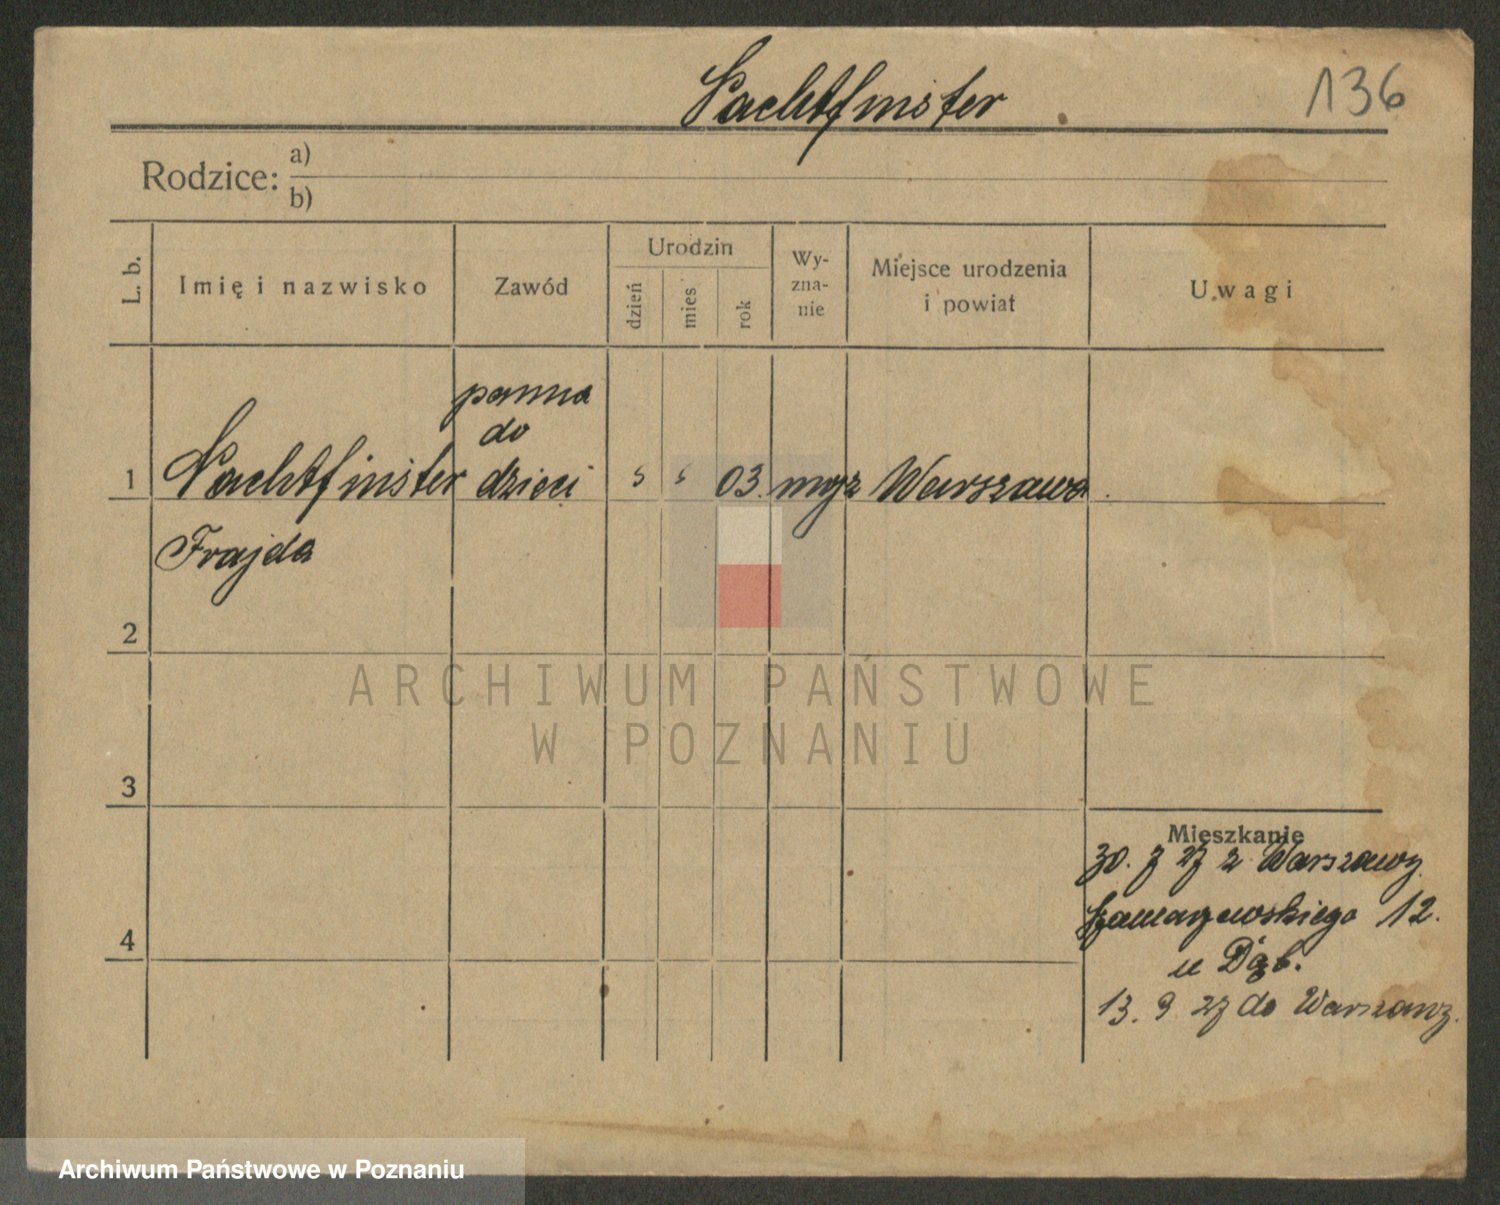 Nachtfinster
136
Rodzice: a)
b)
L. b.
Imię i nazwisko
Zawód
Urodzin
dzień
mies
rok
Wy-
zna-
nie
Miejsce urodzenia
i powiat
Uwagi
panna
do
1 Nachtfinster dzieci 5 5 03. mojż Warszawa.
Frajda
2
ARCHIWUM PAŃSTWOWE
W POZNANIU
3
Mieszkanie
30. 7 27 z Warszawy
Szamarzewskiego 12.
u Dąb.
4
13. 9 27 do Warszawy.
Archiwum Państwowe w Poznaniu